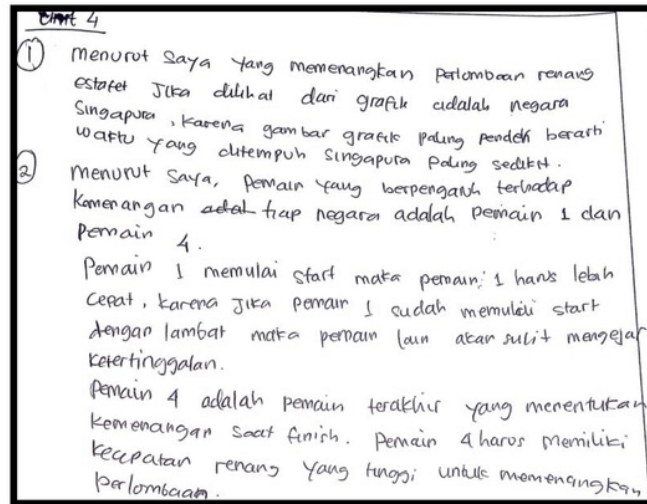 Unit 4
① Menurut saya yang memenangkan perlombaan renang
estafet jika dilihat dari grafik adalah negara
Singapura, karena gambar grafik paling pendek berarti
waktu yang ditempuh singapura paling sedikit.
② Menurut saya, pemain yang berpengaruh terhadap
kemenangan adal tiap negara adalah pemain 1 dan
pemain 4.
Pemain 1 memulai start maka pemain 1 harus lebih
cepat, karena jika pemain 1 sudah memulai start
dengan lambat maka pemain lain akan sulit mengejar
ketertinggalan.
Pemain 4 adalah pemain terakhir yang menentukan
kemenangan saat finish. Pemain 4 harus memiliki
kecepatan renang yang tinggi untuk memenangkan
perlombaan.